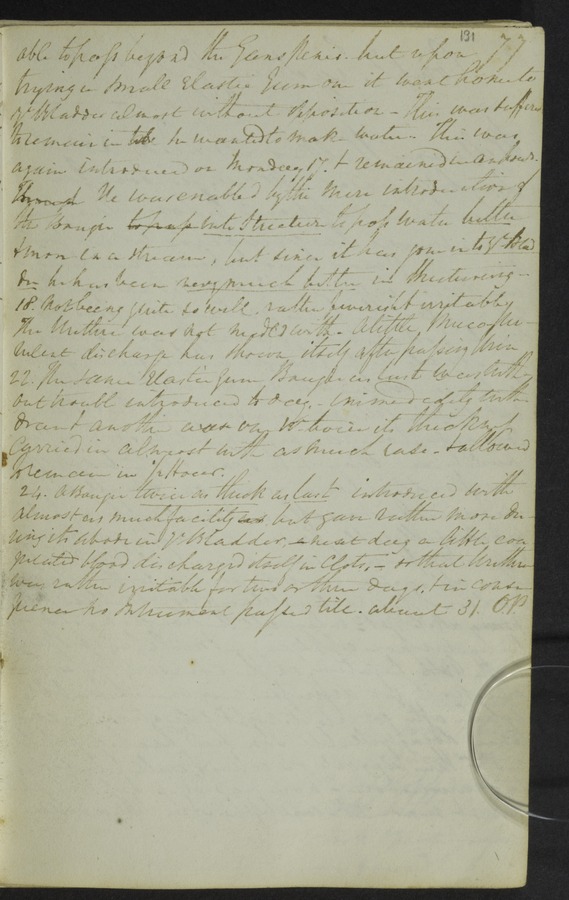 131
77
able to pass beyond the Glans Penis. but upon
trying a small Elastic Gum one it went home to
ye Bladder almost without opposition - This was suffered
to remain in till he wanted to make water. This was
again introduced on Monday 17. & remained an hour.
He was enabled by the mere introduction of
the Bougie to pass into Stricture to pass water better
& more in a stream, but since it has gone into ye Blad
der he has been very much better in
18 Not being quite so well. rather feverish & irritable
The Urethra was not meddled with. A little Muco Pu-
rulent discharge has shown itself after passing urine
22. The same Elastic Gum Bougie as last was with
out trouble introduced to day. immediately with
drawn & another was twice its thickness
carried in almost with as much ease. & allowed
to remain in 1/2 Hour.
24. A Bougie twice as thick as last introduced with
almost as much facility but gave rather more du
ring its abode in ye Bladder, next day a little coa
gulated blood discharged itself in Clots, - & the Urethra
was rather irritable for two or three days, & in conse
quence no Instrument passed till about 31.